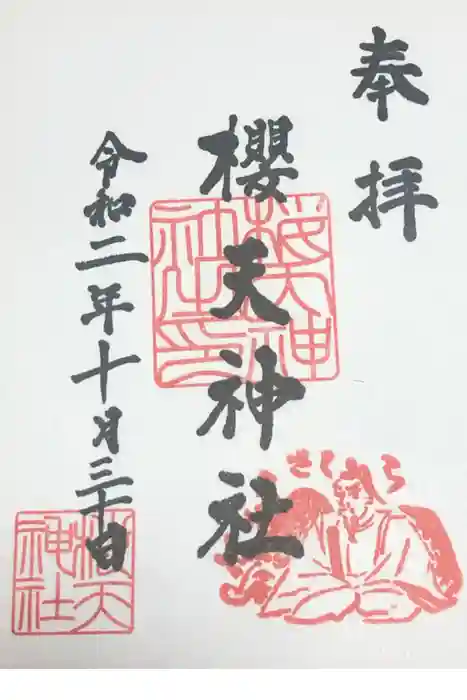 奉拝
櫻天神社
令和二年十月三十日
桜天神社印
さくら
桜天神社